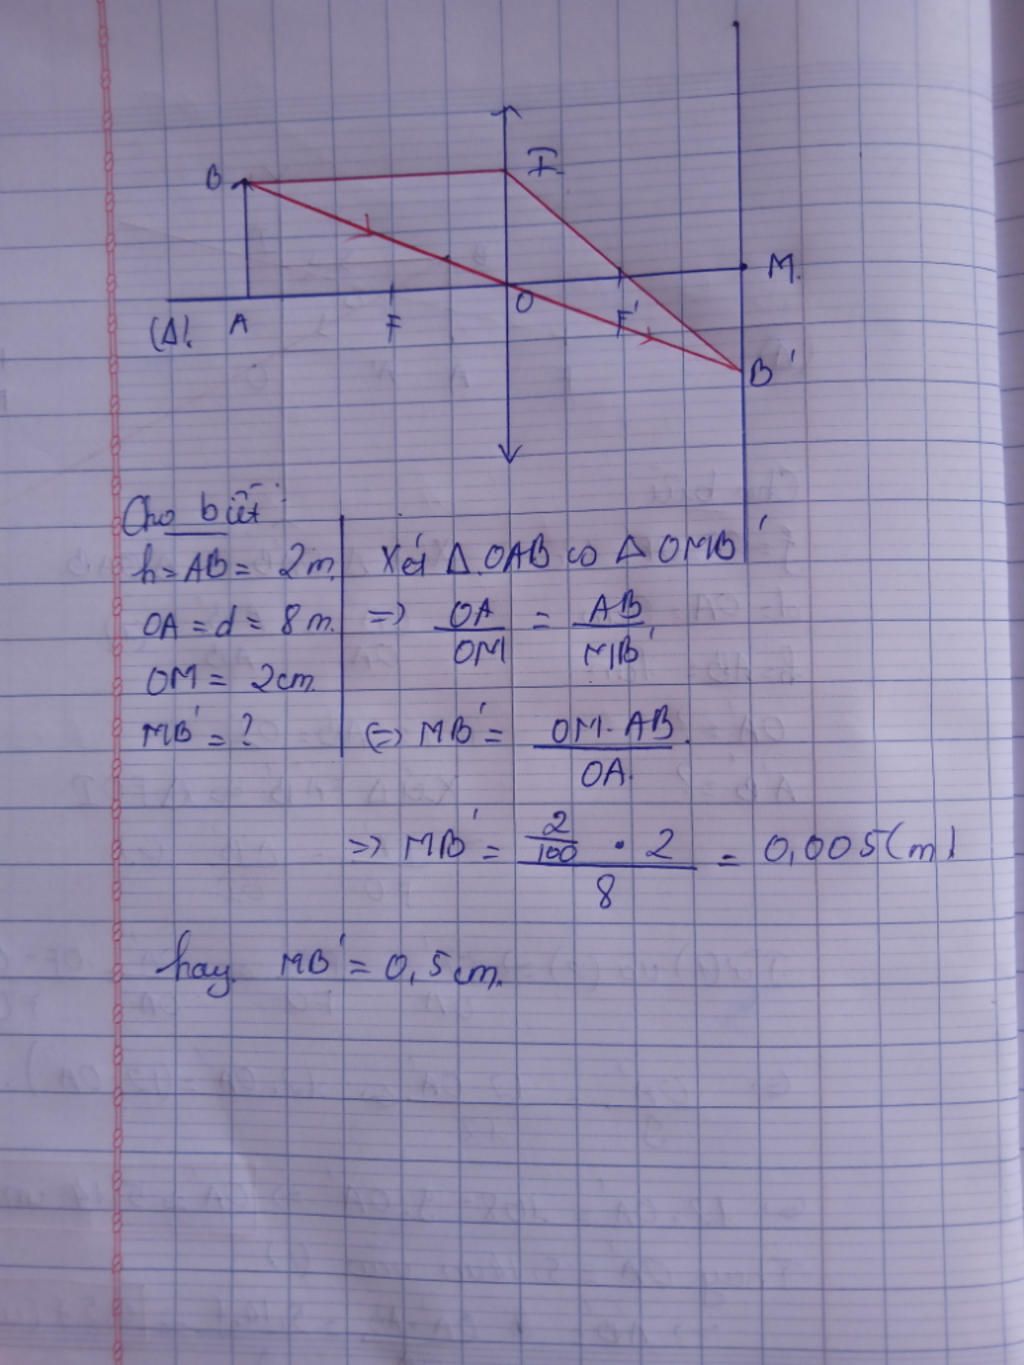 B
I
M.
(Δ).
A
F
O
F'
B'
Cho biết:
h = AB = 2m.
OA = d = 8m.
OM = 2cm.
MB' = ?
Xét Δ OAB ∽ Δ OMB'
=> OA/OM = AB/MB'
<=> MB' = OM. AB/OA.
=> MB' = 2/100 . 2/8 = 0,005(m)
hay MB' = 0,5cm.